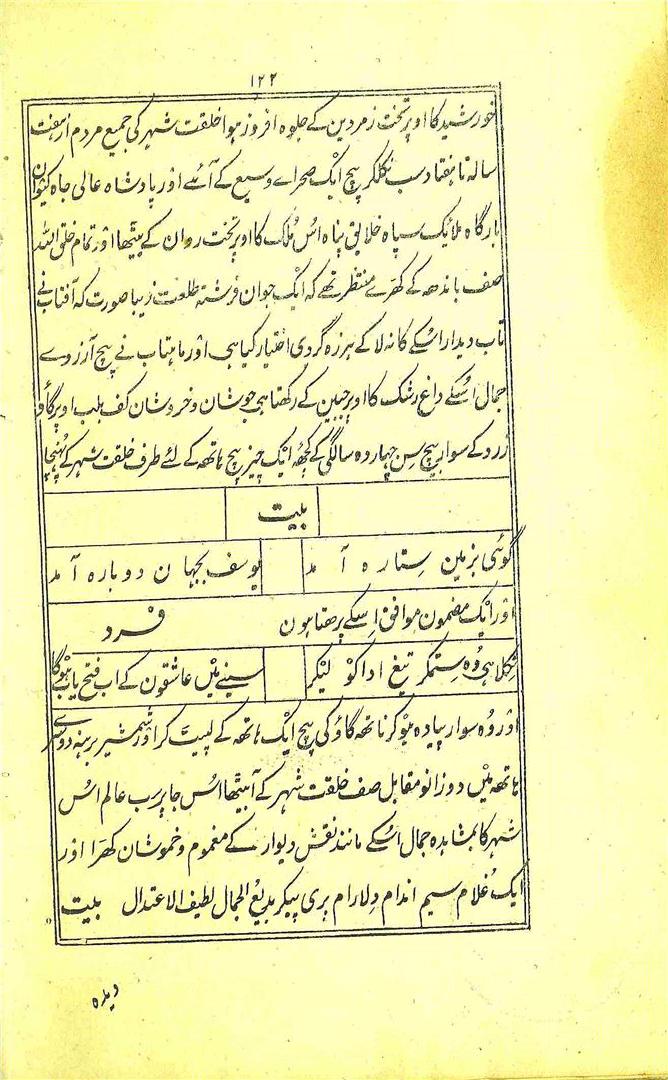 ۱۲۲
خورشید کا اوپر تخت زمردین کے جلوہ افروز ہوا خلقت شہر کی جمیع مردم از ہفت
سالہ تا ہفتاد سب نکلکر بیچ ایک صحراے وسیع کے آئے اور پادشاہ عالی جاہ کیوان
بارگاہ ملایک سپاہ خلایق پناہ اس ملک کا اوپر تخت روان کے بیٹھا اور تمام خلق اللہ
صف باندھ کے کھرے منتظر تھے کہ ایک جوان فرشتہ طلعت زیبا صورت کہ آفتاب نے
تاب دیدار اسکے کا نہ لا کے ہرزہ گردی اختیار کیا ہی اور ماہتاب نے بیچ آرزوے
جمال اسکے داغ رشک کا اوپر جبین کے رکھتا ہی جوشان و خروشان کف بلب اوپر گاؤ
زرد کے سوار بیچ سن چہاردہ سالگی کے کچھ ایک چیز بیچ ہاتھ کے لئے طرف خلقت شہر کے پہنچا
بیت
گوئی بزمین ستارہ آمد یوسف بجہان دوبارہ آمد
اور ایک مضمون موافق اسکے پرھتا ہون فرد
نکلا ہی وہ ستمگر تیغ ادا کو لیکر سینے میں عاشقون کے اب فتح یاب ہوگا
اور وہ سوار پیادہ ہوکر ناتھ گاؤ کی بیچ ایک ہاتھ کے لپیٹ کر اور شمشیر برہنہ دوسرے
ہاتھ میں دو زانو مقابل صف خلقت شہر کے آ بیٹھا اس جا پر سب عالم اس
شہر کا بمشاہدہ جمال اسکے مانند نقش دیوار کے مغموم و خموشان کھرا اور
ایک غلام سیم اندام دلارام پری پیکر بدیع الجمال لطیف الاعتدال بیت
دیدہ